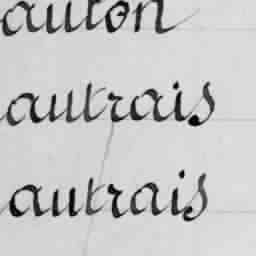 auton
autrais
autrais